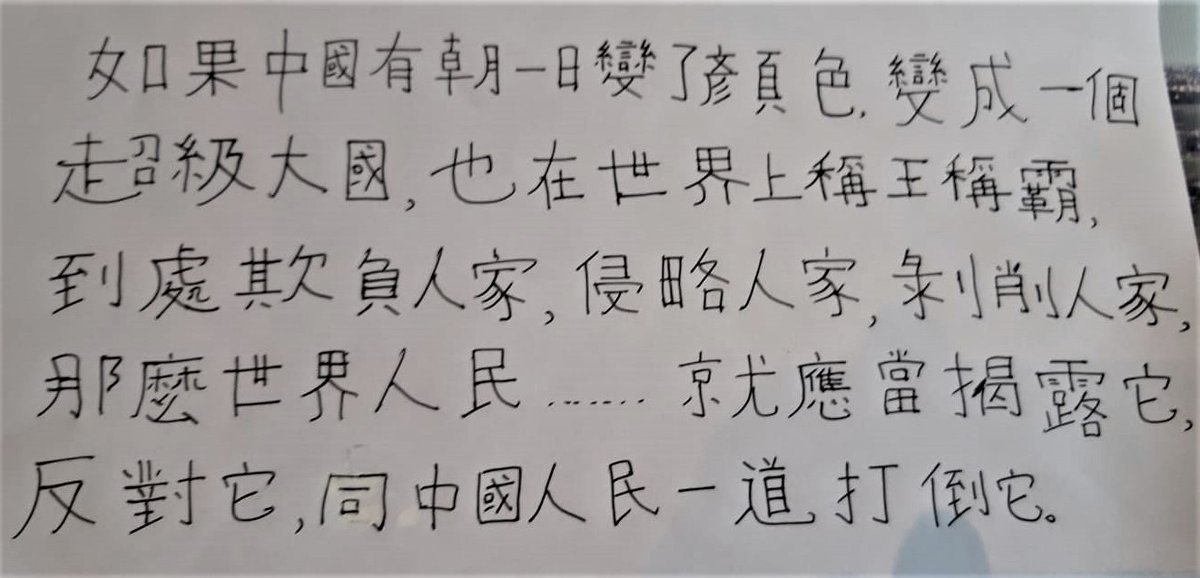 如果中國有朝一日變了顏色,變成一個
超級大國,也在世界上稱王稱霸,
到處欺負人家,侵略人家,剝削人家,
那麼世界人民.......就應當揭露它,
反對它,同中國人民一道,打倒它。